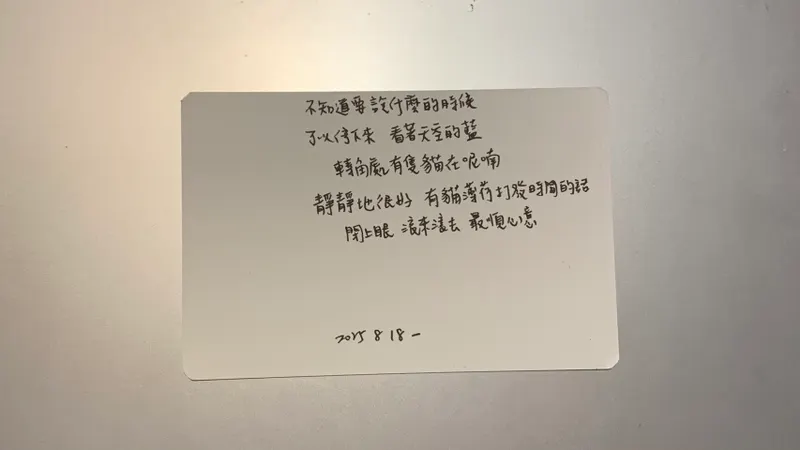 不知道要說什麼的時候
可以停下來 看著天空的藍
轉角處有隻貓在呢喃
靜靜地很好 有貓薄荷打發時間的話
閉上眼 滾來滾去 最順心意
2025 8 18 一